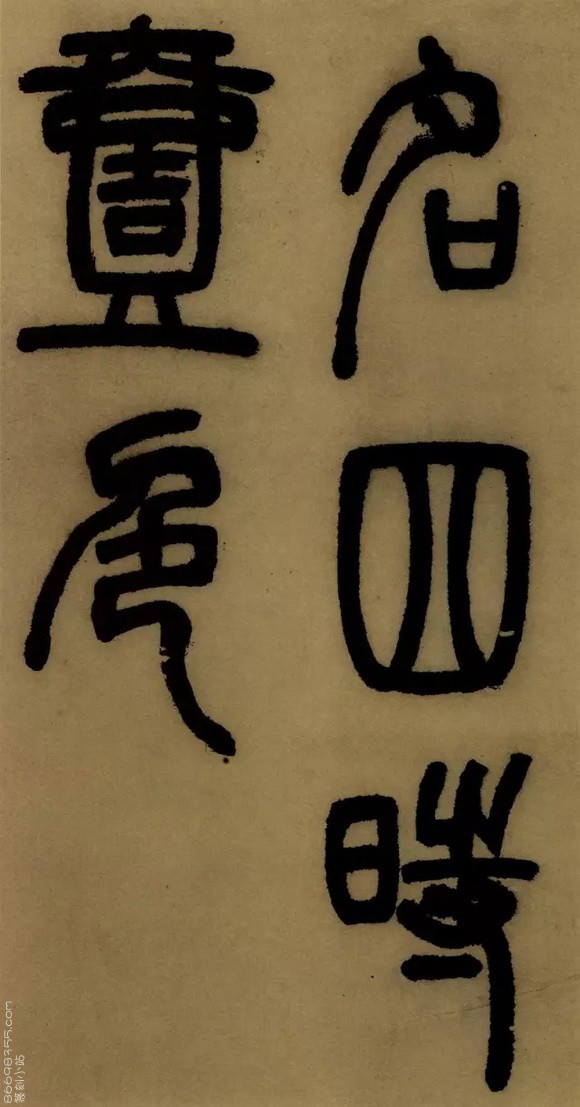 名四時
壹色
86698355.com
篆刻小站